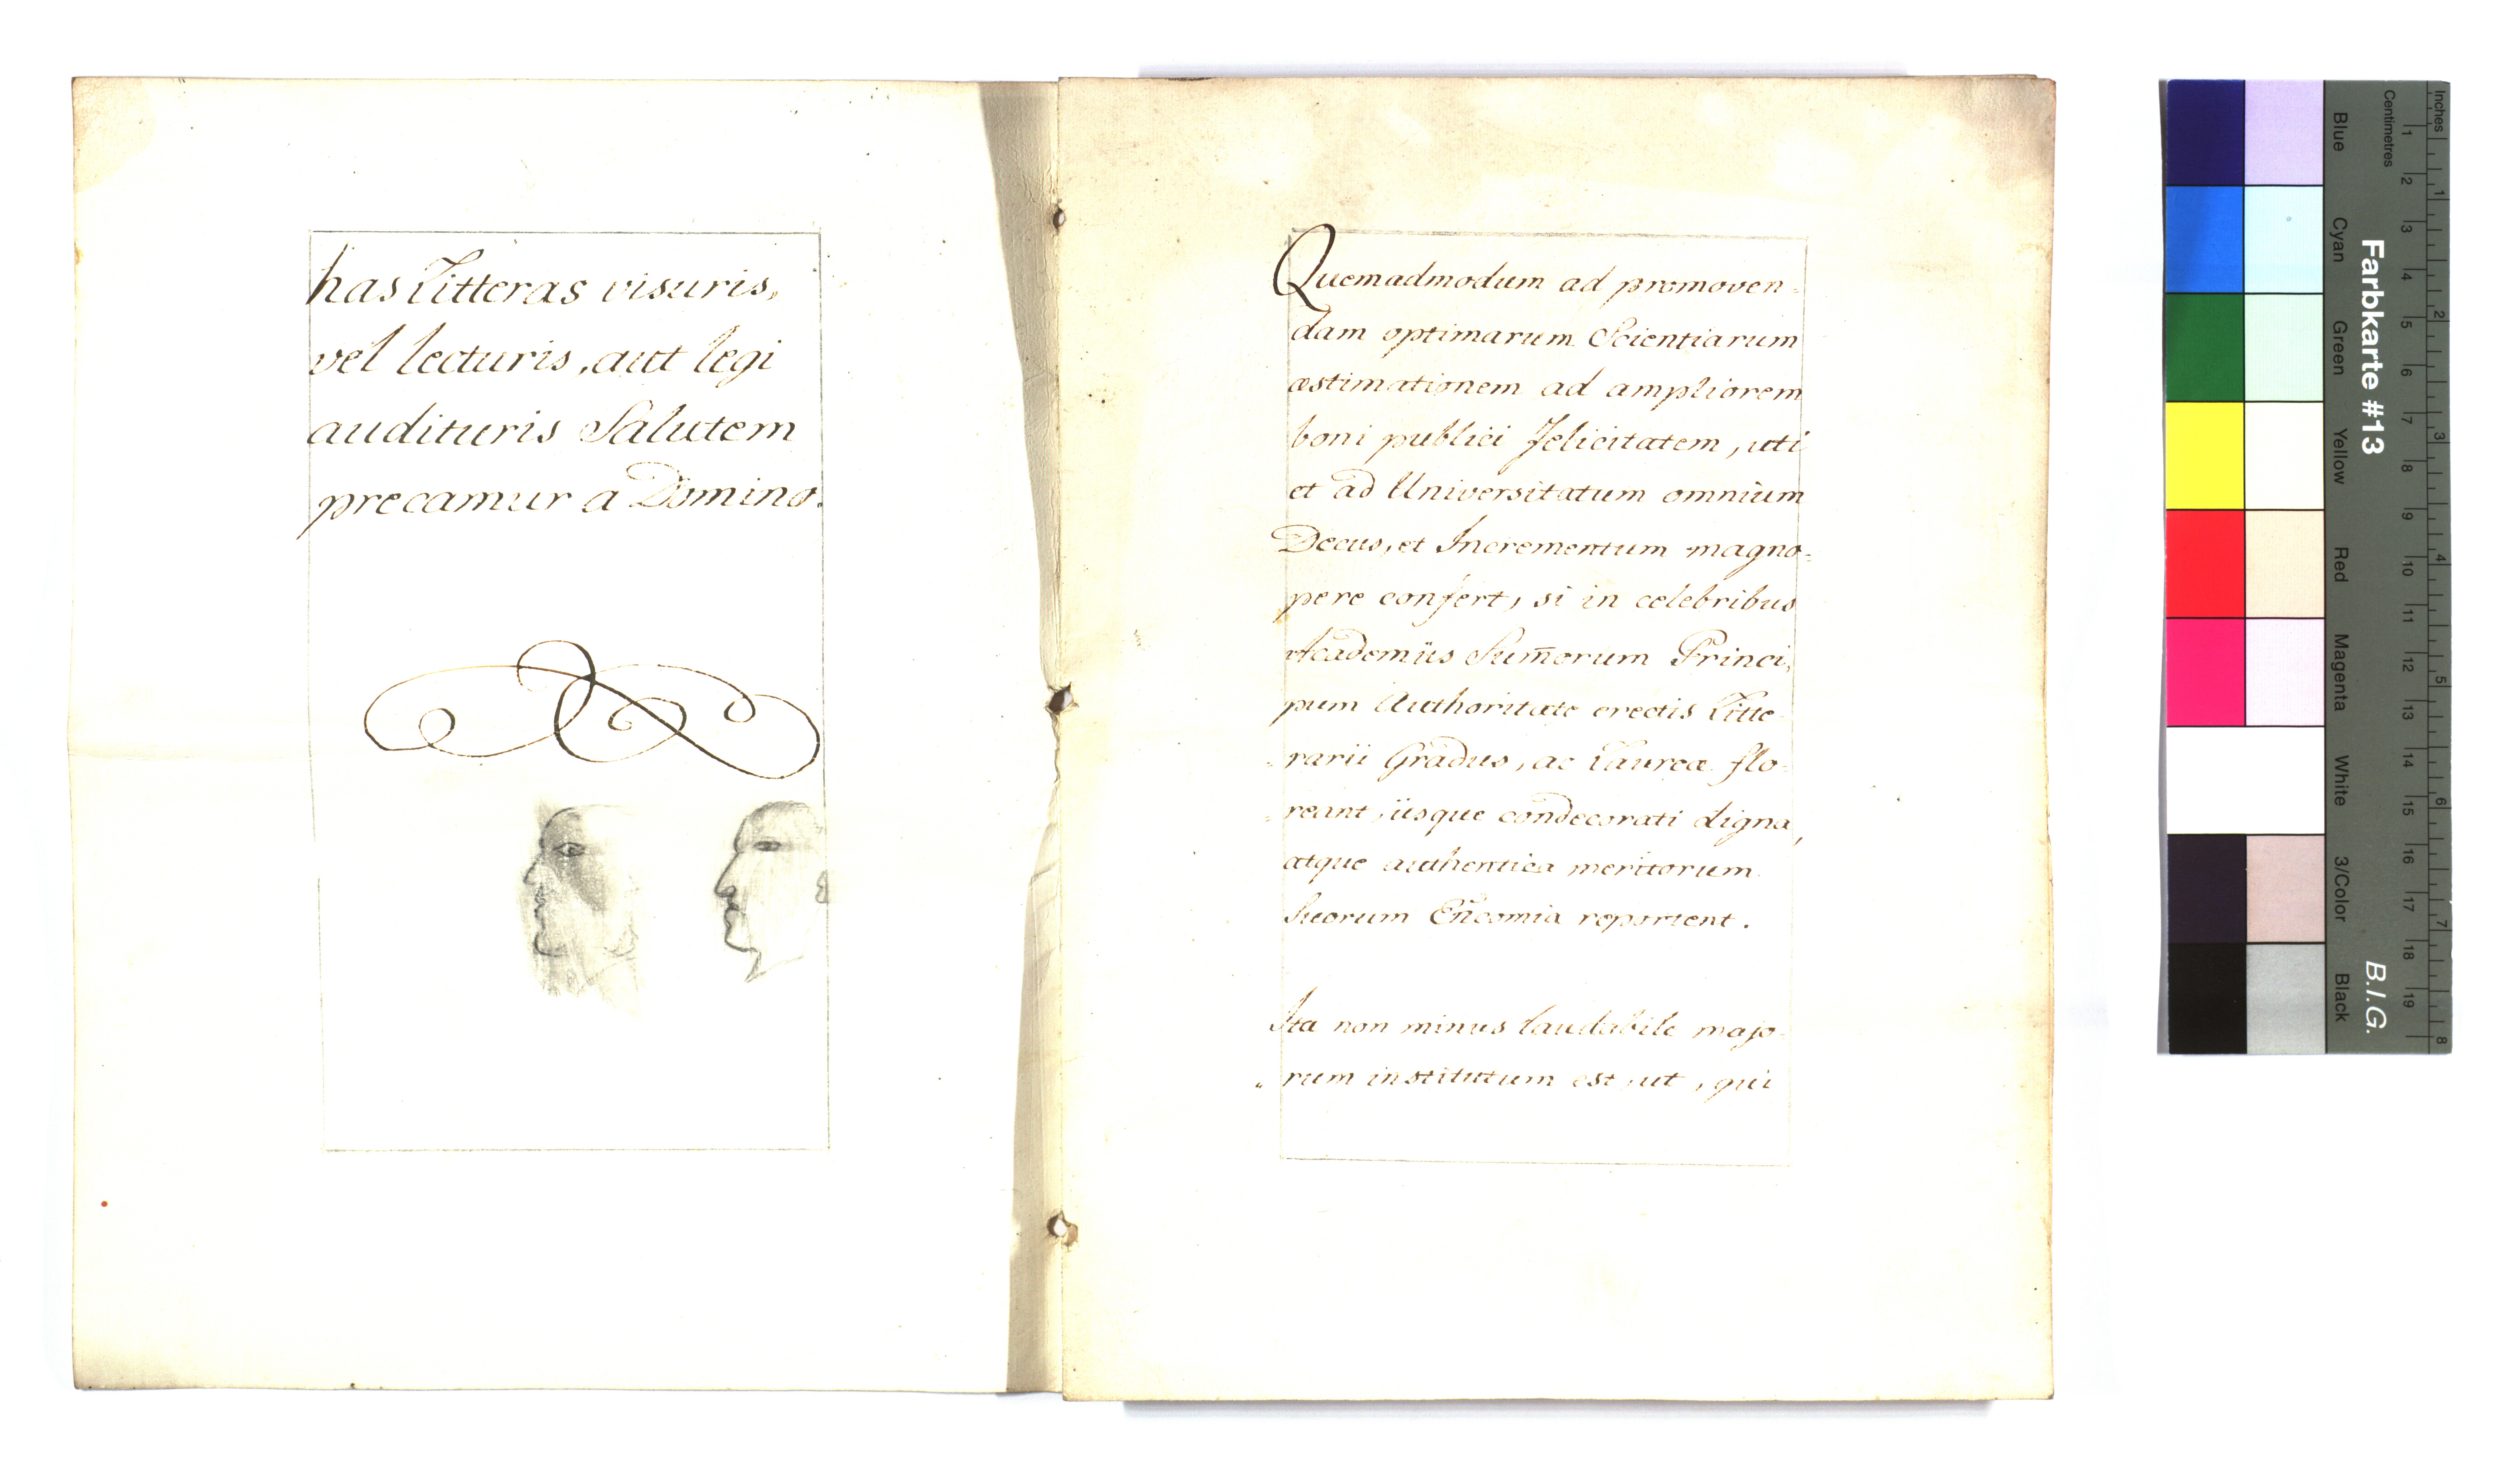 has Litteras visuris,
vel lecturis, aut legi
audituris Salutem
precamur a Domino.
Quemadmodum ad promoven-
dam optimarum Scientiarum
æstimationem ad ampliorem
boni publici felicitatem, uti
et ad Universitatum omnium
Decus, et Incrementum magno-
pere confert, si in celebribus
Academiis Sum̄orum Princi,
pum Authoritate erectis Litte-
rarii Gradus, ac Laureæ flo-
reant, iisque condecorati digna,
atque authentica meritorum
Suorum Encomia reportent.
Ita non minus laudabile majo-
rum institutum est, ut, qui
Inches
Centimetres
1 2 3 4 5 6 7 8 9 10 11 12 13 14 15 16 17 18 19
1 2 3 4 5 6 7 8
Blue
Cyan
Green
Yellow
Red
Magenta
White
3/Color
Black
Farbkarte #13
B.I.G.